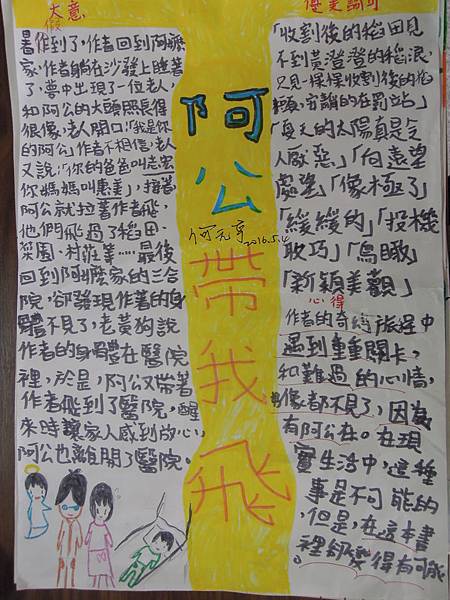 大意
暑假到了,作者回到阿嬤
家,作者躺在沙發上睡著
了,夢中出現了一位老人,
和阿公的大頭照長得
很像,老人開口:「我是你
的阿公」作者不相信,老人
又說:「你的爸爸叫志宏
你媽媽叫惠美」,接著
阿公就拉著作者飛,
他們飛過了稻田、
菜園、村莊等……最後
回到阿嬤家的三合
院,卻發現作著的身
體不見了,老黃狗說
作者的身體在醫院
裡,於是,阿公又帶著
作者飛到了醫院,醒
來時讓家人感到放心,
阿公也離開了醫院。
阿
公
何元亨
2016.5.4
帶
我
飛
優美詞句
「收割後的稻田見
不到黃澄澄的稻浪,
只見一棵棵收割後的稻
在罰站」
「夏天的太陽真是令
人厭惡」「向遠望
處望」「像極了」
「緩緩的」「投機
取巧」「鳥瞰」
「新穎美觀」
心得
作者的奇幻旅程中
遇到重重關卡,
和難過的心情,
好像都不見了,因為
有阿公在。在現
實生活中,這種
事是不可能的
,但是,在這本書
裡卻變得有可能
。